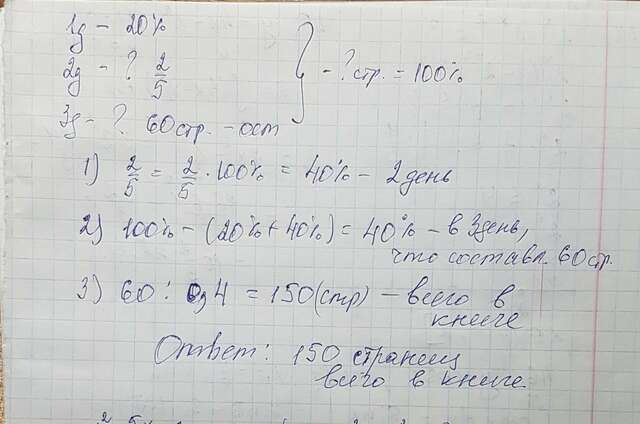 1д – 20%
2д – ? 2/5
} – ? стр. = 100%
3д – ? 60 стр. – ост
1) 2/5 = 2/5 · 100% = 40% – 2 день
2) 100% – (20% + 40%) = 40% – в 3 день,
что составл. 60 стр.
3) 60 : 0,4 = 150 (стр) – всего в
книге
Ответ: 150 страниц
всего в книге.